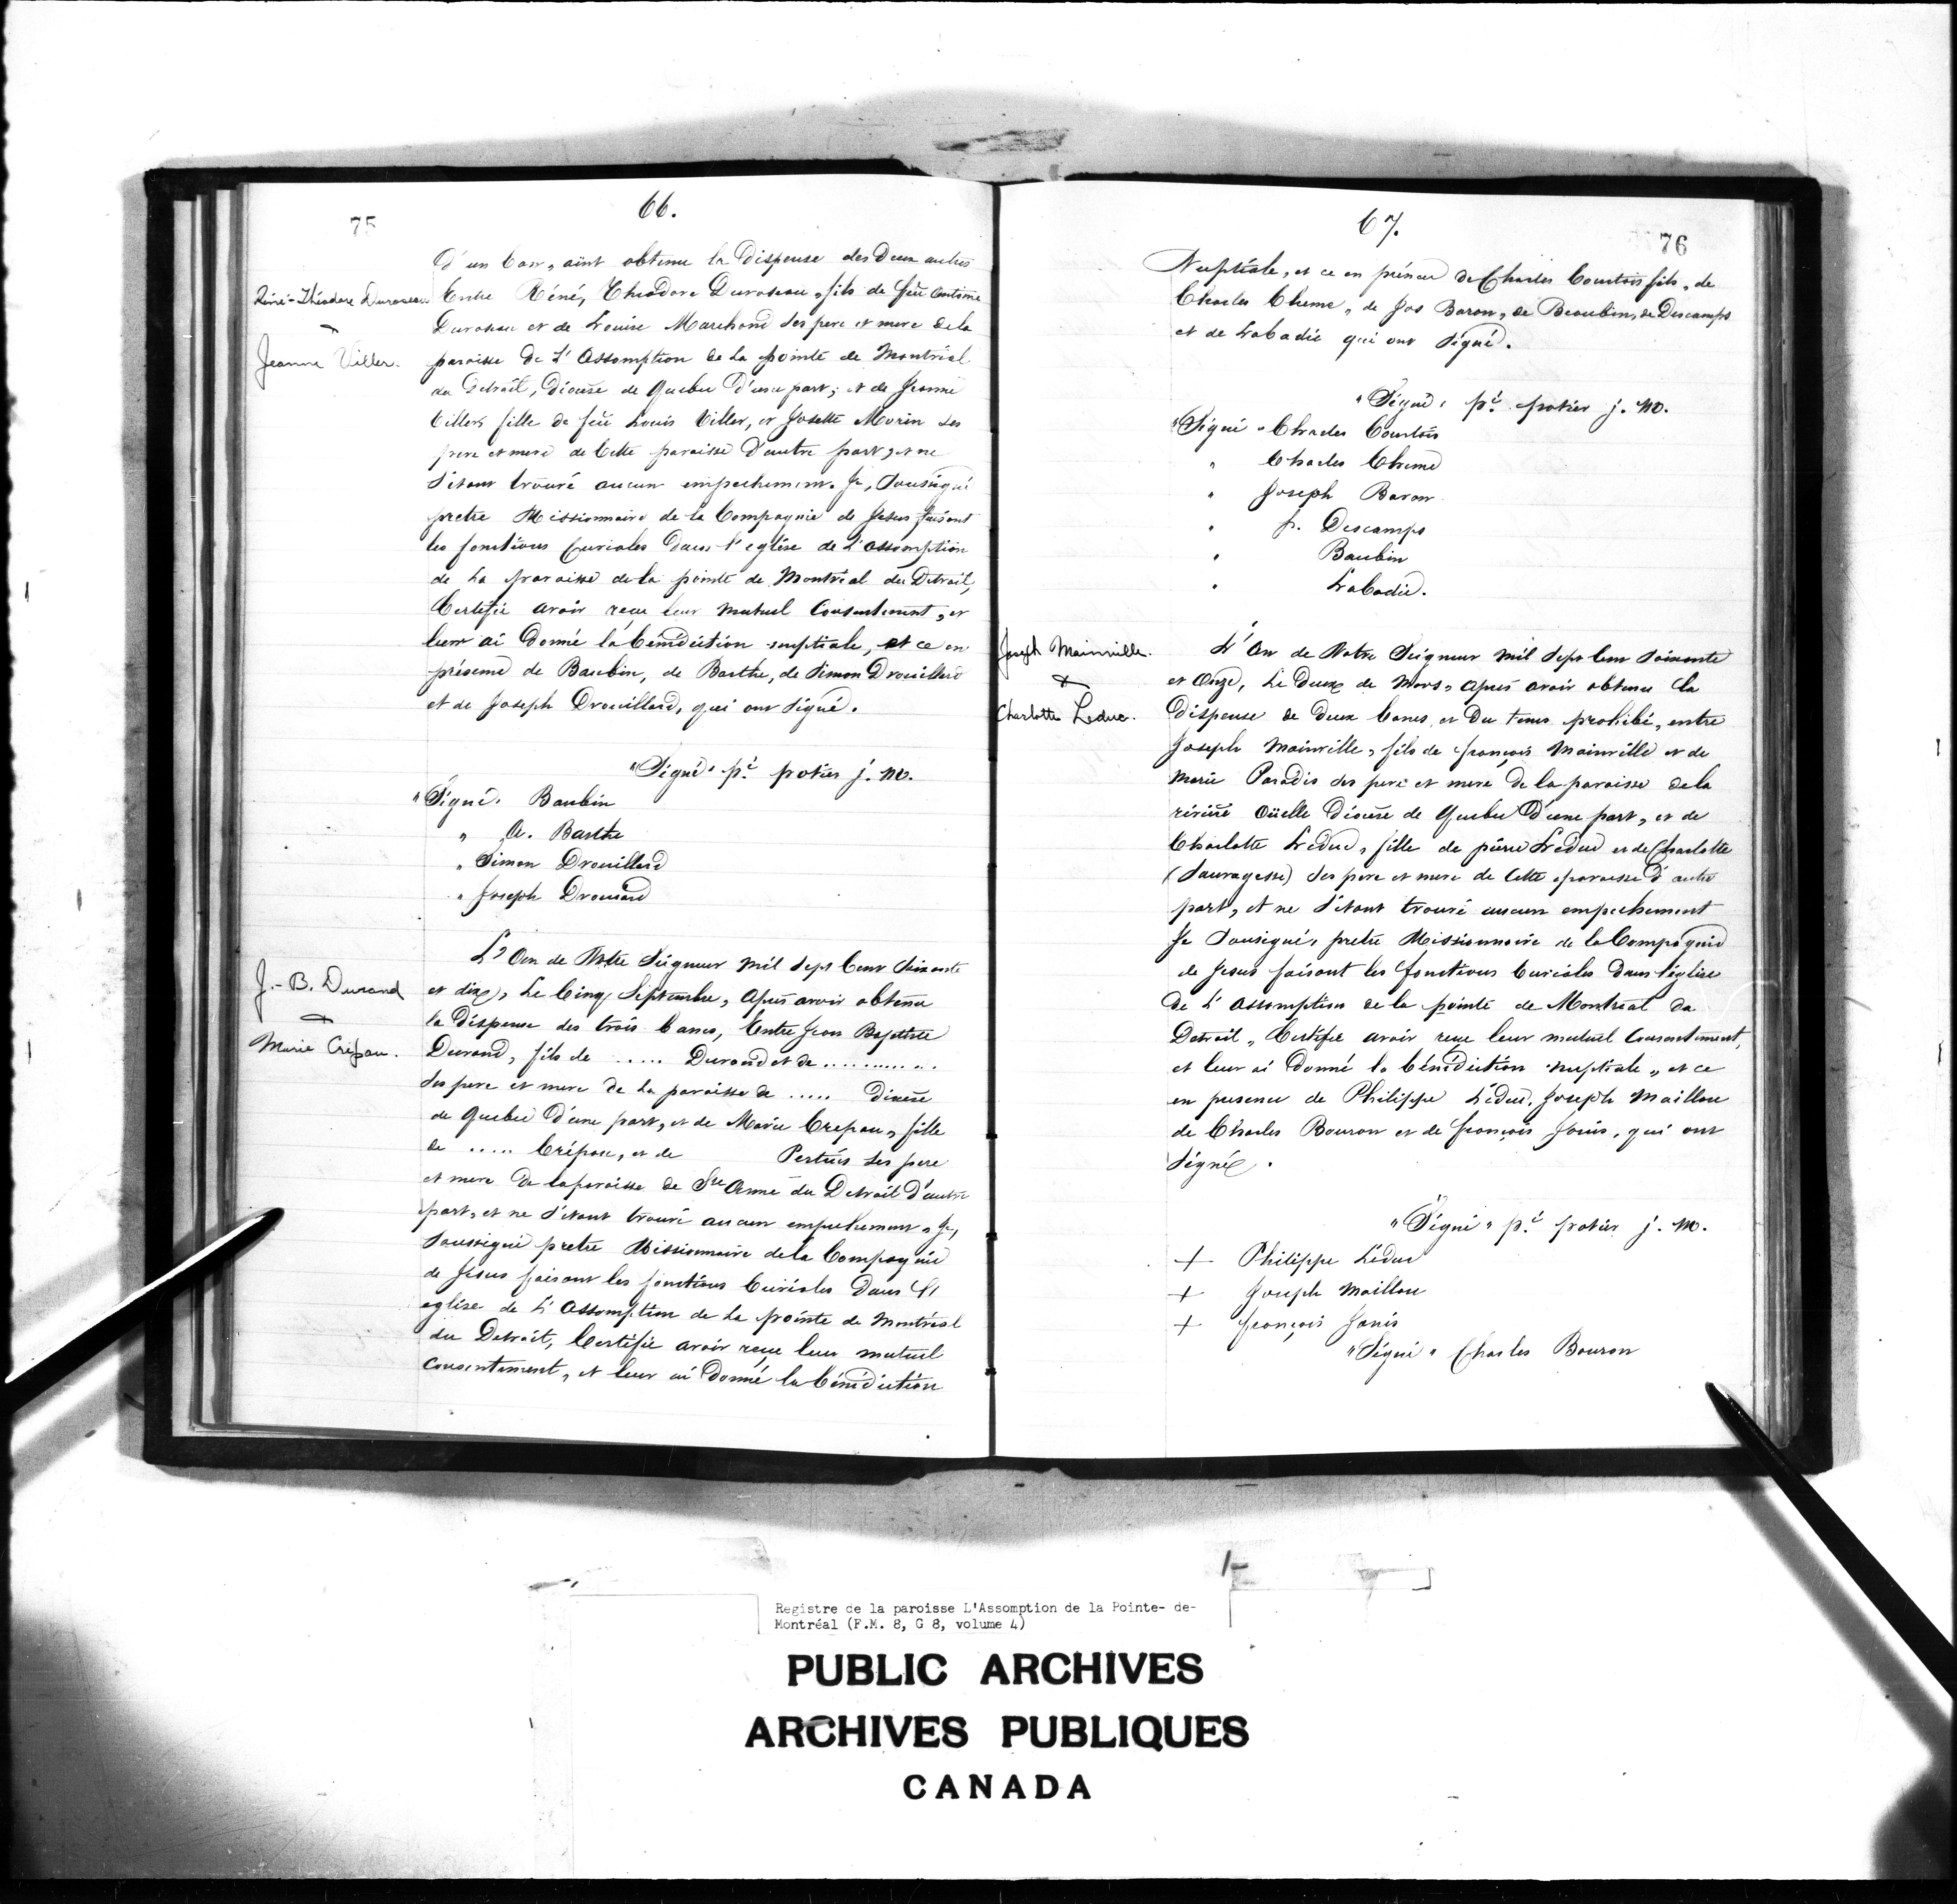 75
66.
D'un ban, aint obtenu la Dispense des Deux autres
Réné-Théodore Duroseau
&
Jeanne Viller.
Entre Réné, Théodore Duroseau, fils de feü Antoine
Duroseau et de Louise Marchand ses pere et mere de la
paroisse de L'Assomption de La pointe de Montréal
du Détroit, Diocese de Quebec D'une part; et de Jeanne
Villers fille de feü Louis Viller, et Josette Morin ses
pere et mere de Cette paroisse D'autre part, et ne
s'étant trouvé aucun empechement. Je, Soussigné
pretre Missionnaire de la Compagnie de Jesus faisant
les fonctions Curiales Dans l'eglise de L'assomption
de La paroisse de la pointe de Montréal du Detroit,
Certifie avoir reçu leur mutuel Consentement, et
leur ai Donné la bénédiction nuptiale, et ce en
présence de Baubin, de Barthe, de Simon Drouillard
et de Joseph Drouillard, qui ont signé.
"Signé" p.é potier j. m.
"Signé. Baubin
" A. Barthe
" Simon Drouillard
" Joseph Drouiard
J.-B. Durand
&
Marie Crépau.
L'An de Notre Seigneur mil Sept Cent Soixante
et dix, Le Cinq Septembre, Après avoir obtenu
la Dispense des trois bancs, Entre Jean Baptiste
Durand, fils de ..... Durand et de ..........
ses pere et mere de La paroisse de ..... Diocese
de Quebec D'une part, et de Marie Crepau, fille
de ..... Crépau, et de Pertuis ses pere
et mere de la paroisse de Ste Anne du Detroit D'autre
part, et ne s'étant trouvé aucun empechement, Je,
Soussigné pretre Missionnaire de la Compagnie
de Jésus faisant les fonctions Curiales Dans L'
eglise de L'Assomption de La pointe de Montréal
du Detroit, Certifie avoir reçu leur mutuel
Consentement, et leur ai Donné la bénédiction
67.
76
Nuptiale, et ce en présence de Charles Courtois fils, de
Charles Chemé, de Jos Baron, de Beaubin, de Descamps
et de Labadie qui ont signé.
"Signé, p.é potier j. m.
"Signé " Charles Courtois
" Charles Chemé
" Joseph Baron
" p. Descamps
" Baubin
" Labadie.
Joseph Mainville.
&
Charlotte Leduc.
L'An de Notre Seigneur mil Sept Cent Soixante
et Onze, Le Deux de Mars, Après avoir obtenu la
Dispense de Deux bancs, et Du tems prohibé, entre
Joseph Mainville, fils de françois Mainville et de
Marie Paradis ses pere et mere de la paroisse de la
riviere Oüelle Diocese de Quebec D'une part, et de
Charlotte Leduc, fille de pierre Leduc et de Charlotte
(Sauvagesse) ses pere et mere de Cette paroisse D'autre
part, et ne s'étant trouvé aucun empechement
Je Sousigné, pretre Missionnaire de la Compagnie
de Jesus faisant les fonctions Curiales Dans l'église
de L'assomption de la pointe de Montréal du
Detroit, Certifie avoir reçu leur mutuel Consentement,
et leur ai Donné la bénédiction nuptiale, et ce
en presence de Philippe Léduc, Joseph Maillou
de Charles Bouron et de françois Janis, qui ont
signé.
"Signé" p.é potier j. m.
+ Philippe Léduc
+ Joseph Maillou
+ françois Janis
"Signé" Charles Bouron
Registre de la paroisse L'Assomption de la Pointe- de-
Montréal (F.M. 8, G 8, volume 4)
PUBLIC ARCHIVES
ARCHIVES PUBLIQUES
CANADA